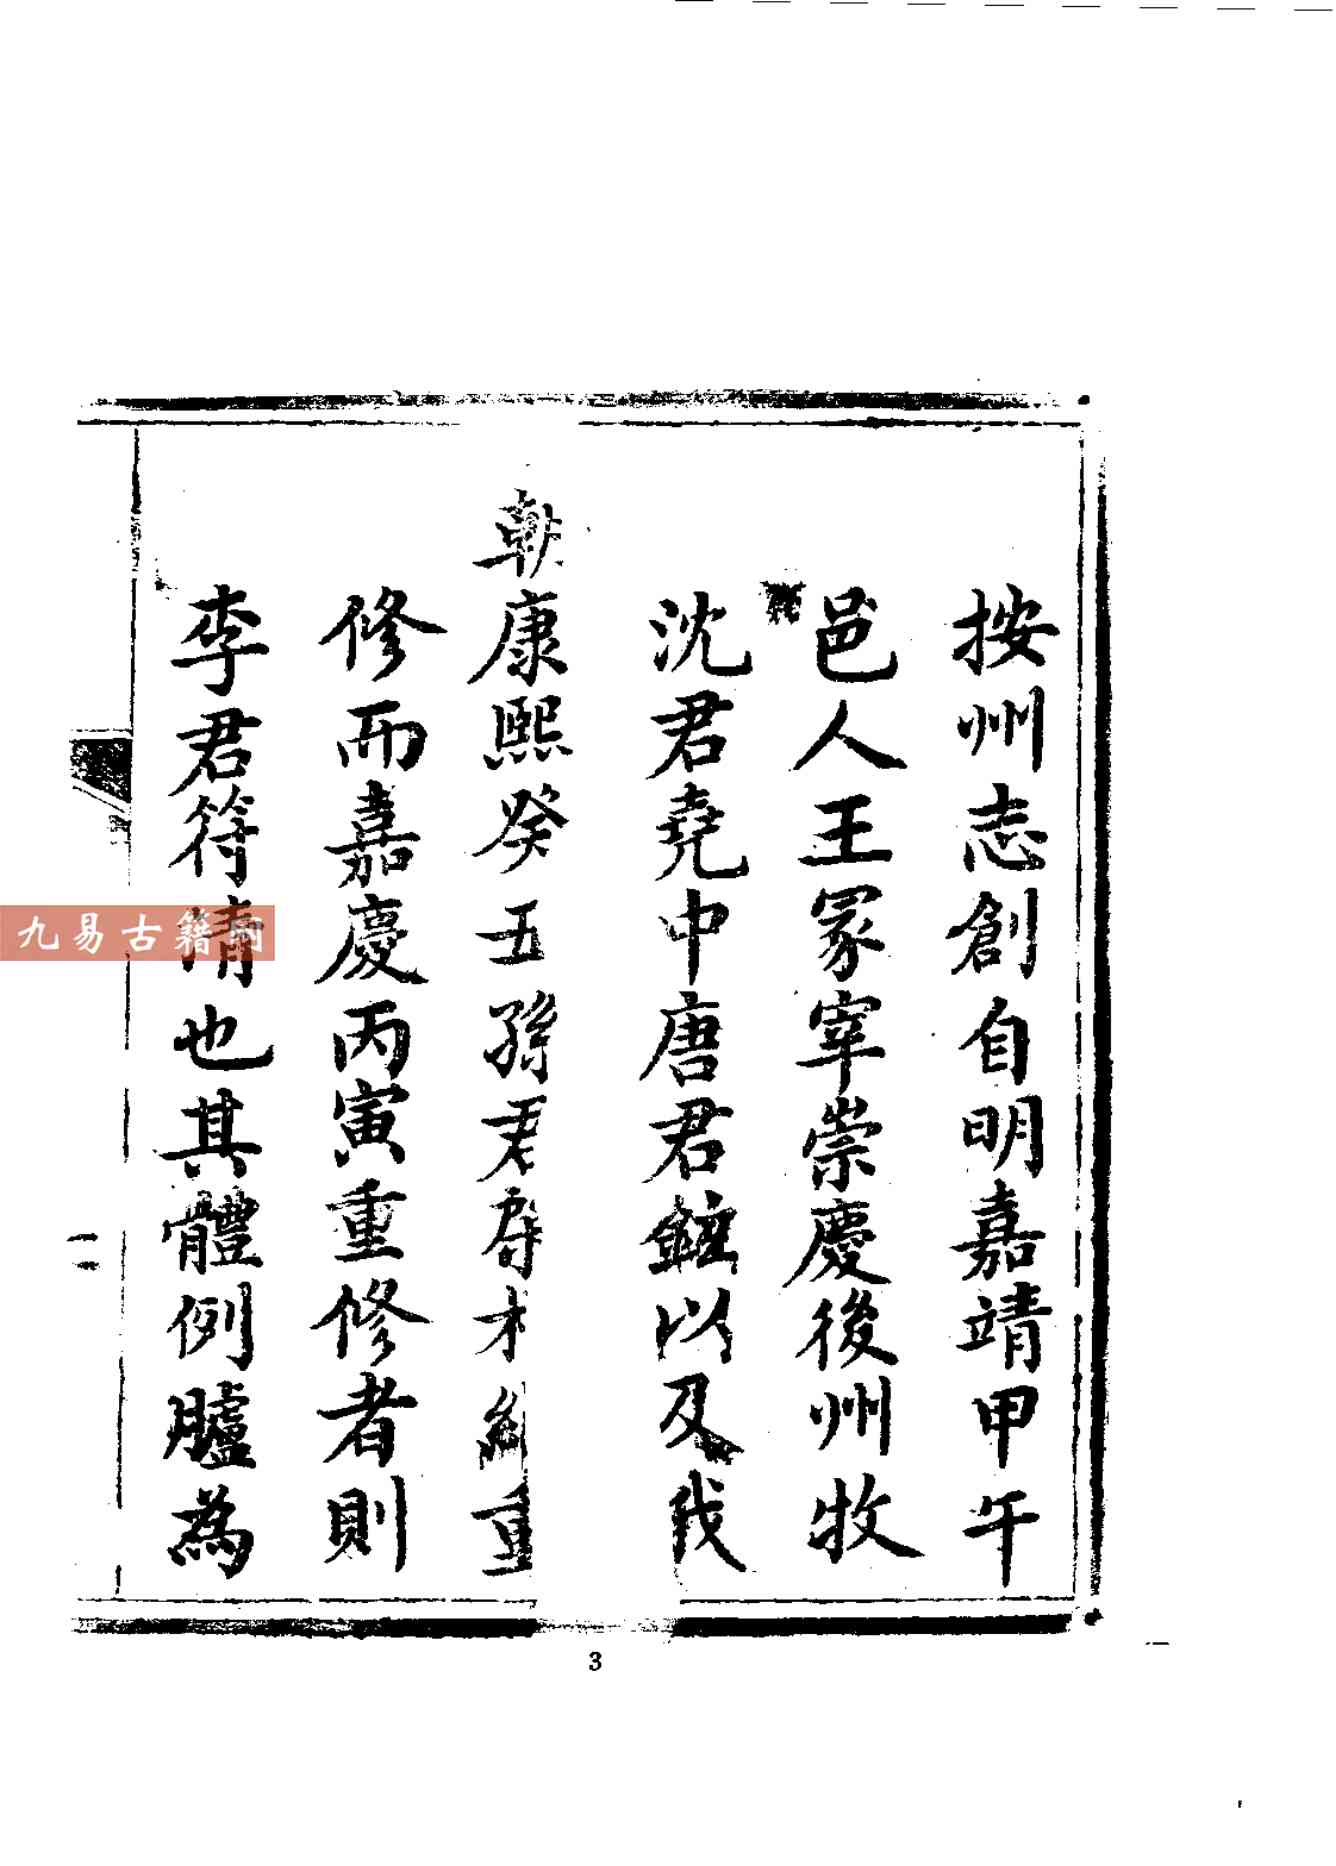 按州志創自明嘉靖甲午
邑人王冢宰崇慶後州牧
沈君堯中唐君以及我
朝康熙癸丑孫君相繼重
修而嘉慶丙寅重修者則
李君符清也其體例臚為
二
3
九易古籍网